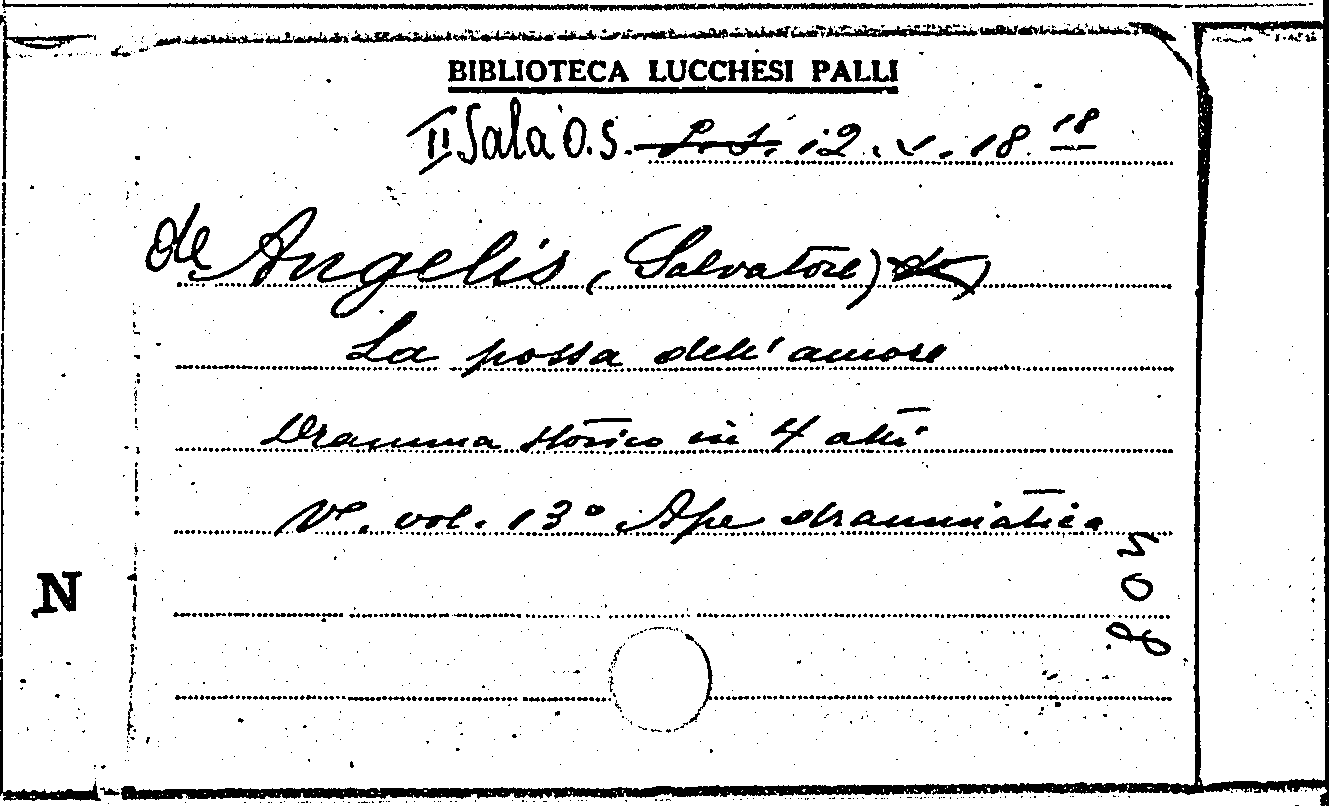 BIBLIOTECA LUCCHESI PALLI
II Sala O.S. P.S. 12. v. 18 18
de Angelis, (Salvatore) de)
La possa dell'amore
Dramma storico in 4 atti
Ve. vol. 13° Ape drammatica
N